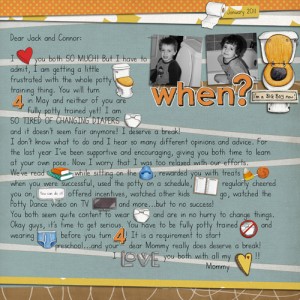 January 2011
Dear Jack and Connor:
I you both SO MUCH! But I have to
admit, I am getting a little
frustrated with the whole potty
training thing. You will turn
4 in May and neither of you are
fully potty trained yet! I am
SO TIRED OF CHANGING DIAPERS
and it doesn't seem fair anymore! I deserve a break!
when?
I'm a Big Boy now!
I don't know what to do and I hear so many different opinions and advice. For
the last year I've been supportive and encouraging, giving you both time to learn
at your own pace. Now I worry that was too relaxed with our efforts.
We've read while sitting on the , rewarded you with treats
when you were successful, used the potty on a schedule, regularly cheered
you on, offered incentives, watched other kids go, watched the
Potty Dance Video on TV and more...but to no success!
You both seem quite content to wear and are in no hurry to change things.
Okay guys, it's time to get serious. You have to be fully potty trained and
wearing before you turn 4! It is a requirement to start
preschool...and your dear Mommy really does deserve a break!
I LOVE you both with all my !!
Mommy